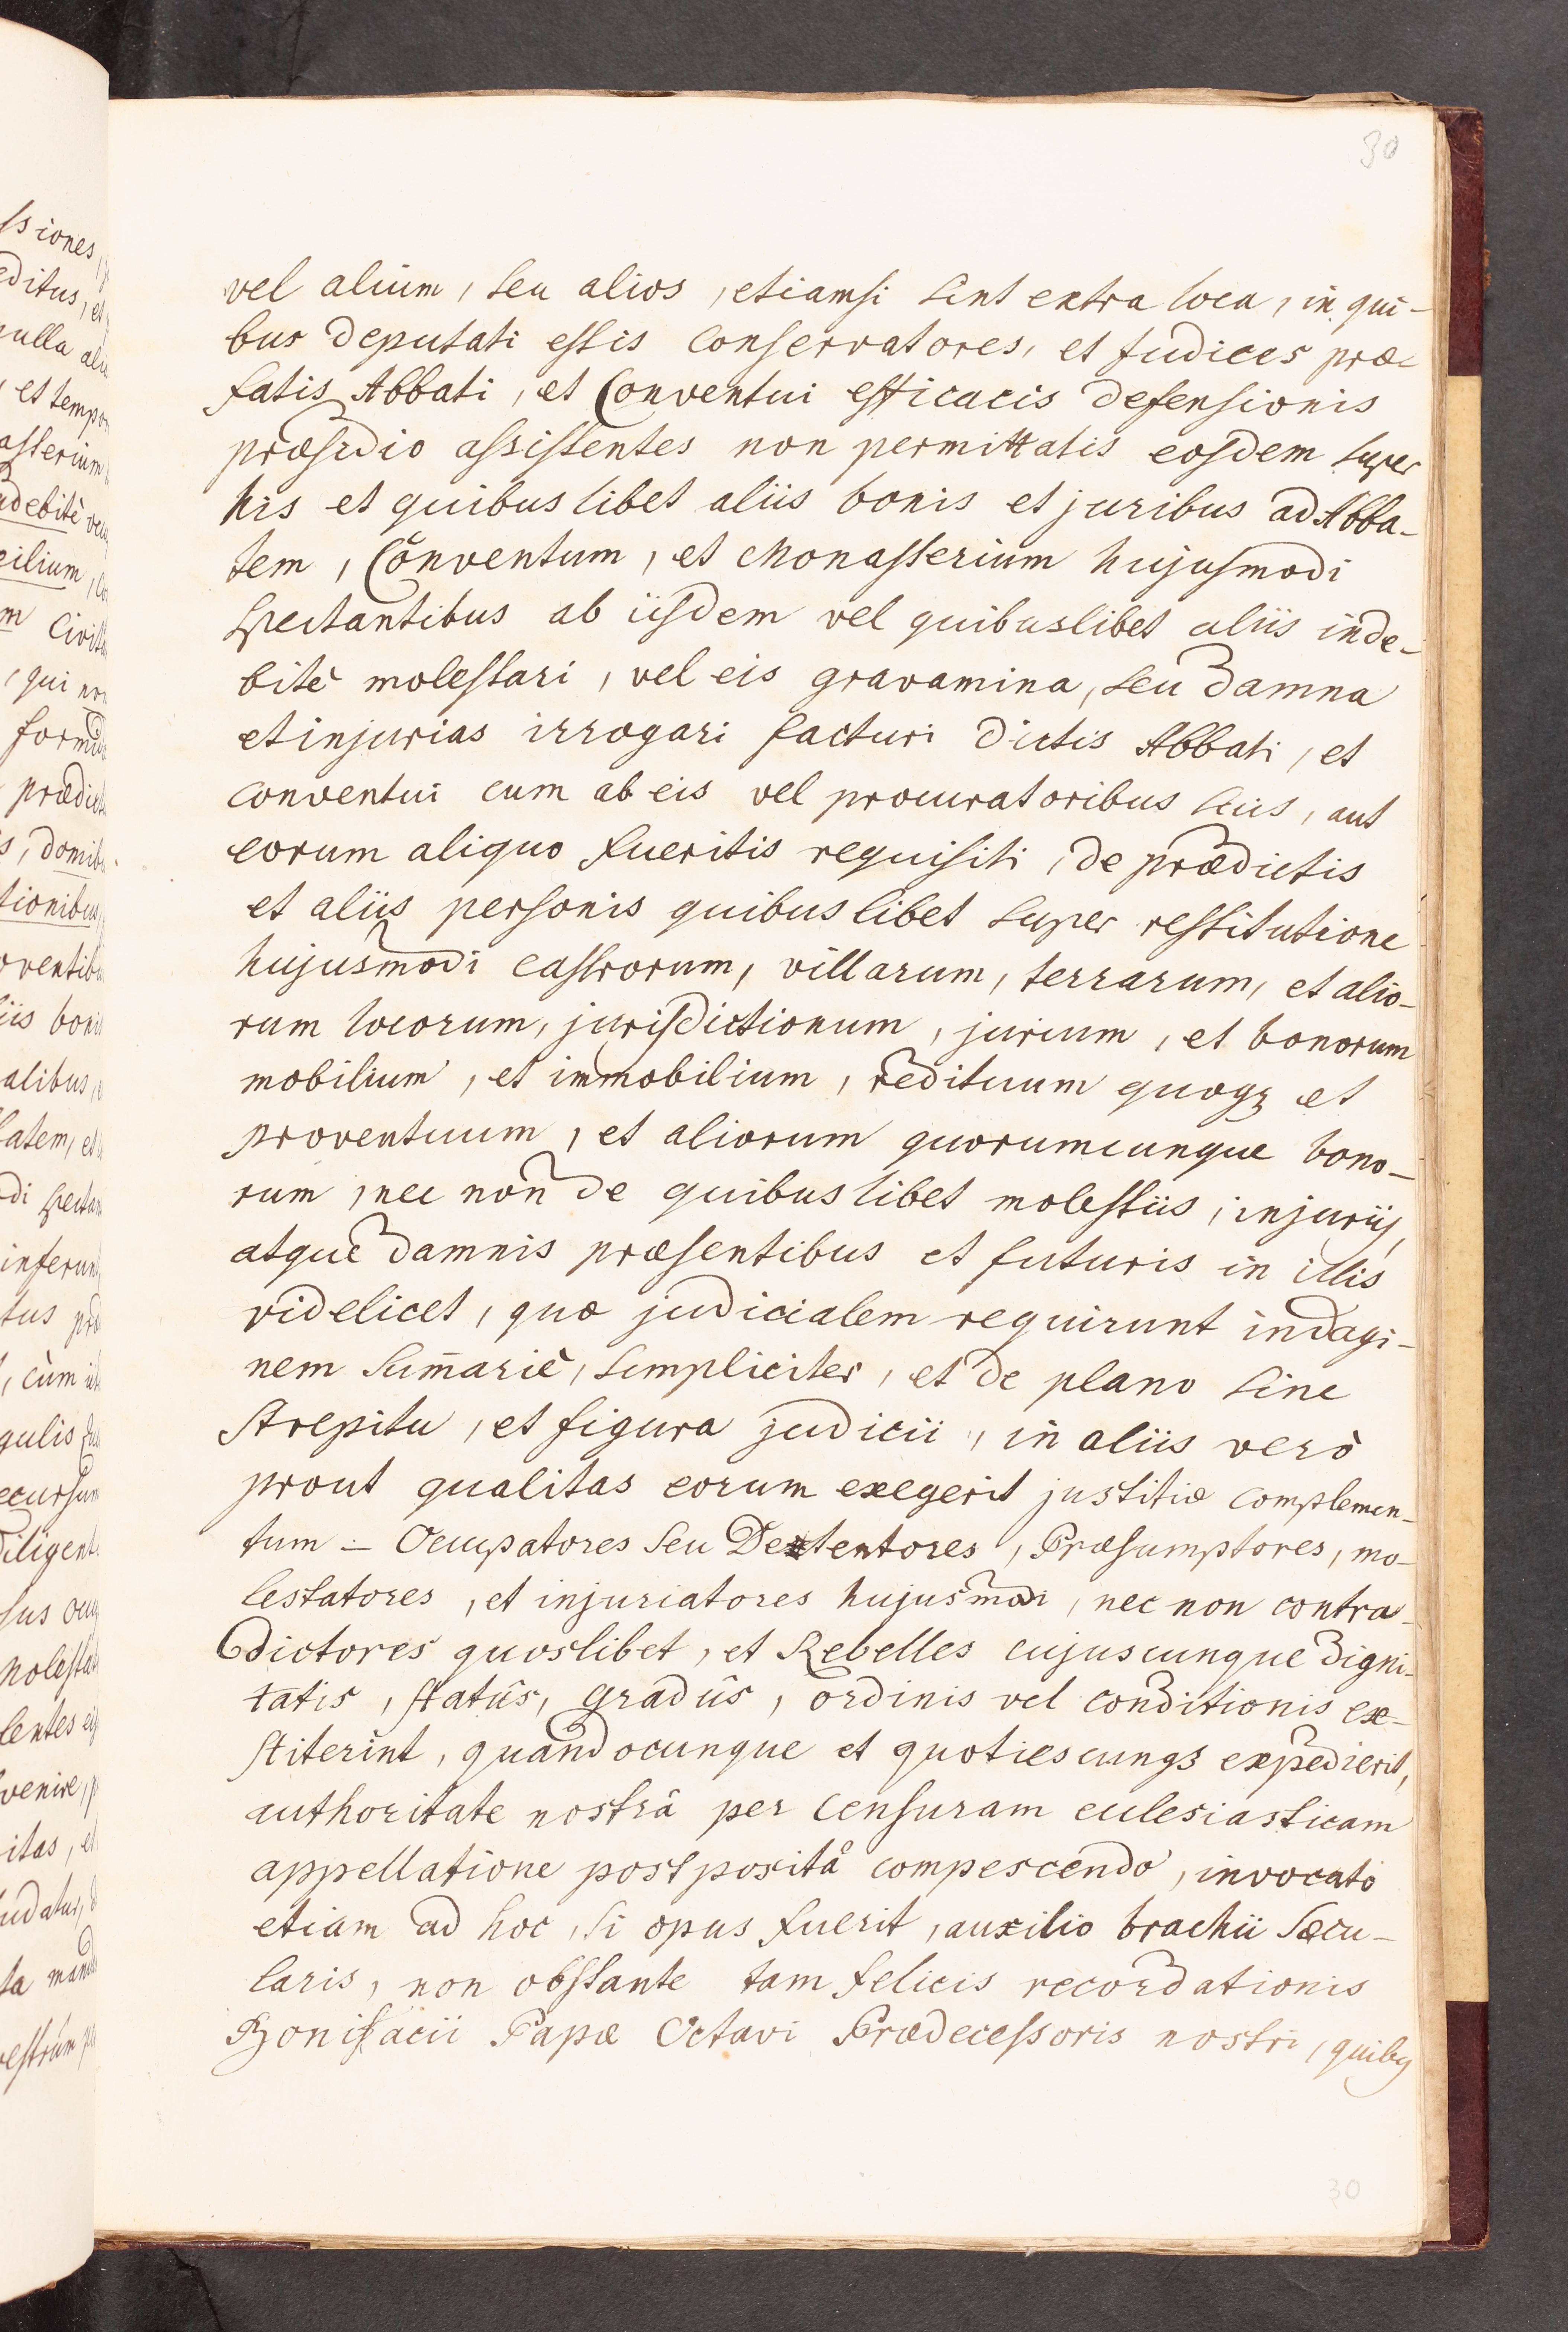 30
vel alium, seu alios, etiamsi sint extra loca, in qui-
bus deputati estis conservatores, et judices præ-
fatis Abbati, et Conventui efficacis defensionis
præsidio assistentes non permittatis eosdem super
his et quibuslibet aliis bonis et juribus ad Abba-
tem, Conventum, et Monasterium hujusmodi
spectantibus ab iisdem vel quibuslibet aliis inde-
bitè molestari, vel eis gravamina, seu damna
et injurias irrogari facturi dictis Abbati, et
conventui cum ab eis vel procuratoribus suis, aut
eorum aliquo fueritis requisiti, de prædictis
et aliis personis quibuslibet super restitutione
hujusmodi castrorum, villarum, terrarum, et alio-
rum locorum, jurisdictionum, jurium, et bonorum
mobilium, et immobilium, redituum quoqꝫ et
proventuum, et aliorum quorumcunque bono-
rum, nec non de quibuslibet molestiis, injuriis,
atque damnis præsentibus et futuris in illis
videlicet, quæ judicialem requirunt indagi-
nem sum̄ariè, simpliciter, et de plano sine
strepitu, et figura judicii, in aliis verò
prout qualitas eorum exegerit justitiæ complemen-
tum – Occupatores seu Detentores, Præsumptores, mo-
lestatores, et injuriatores hujusmodi, nec non contra-
dictores quoslibet, et Rebelles cujuscunque digni-
tatis, statûs, gradûs, ordinis vel conditionis ex-
stiterint, quandocunque et quotiescunqꝫ expedierit,
authoritate nostrâ per censuram ecclesiasticam
appellatione postpositâ compescendo, invocato
etiam ad hoc, si opus fuerit, auxilio brachii sæcu-
laris, non obstante tam felicis recordationis
Bonifacii Papæ Octavi Prædecessoris nostri, quibꝰ
30